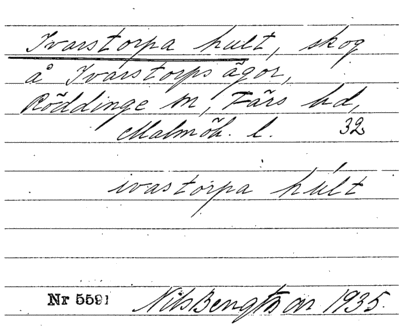 Ivarstorpa hult, skog
å Ivarstorps ägor,
Röddinge sn, Färs hd,
Malmöh. l. 32
ivastorpa hult
Nr 5591 Nils Bengtsson 1935.